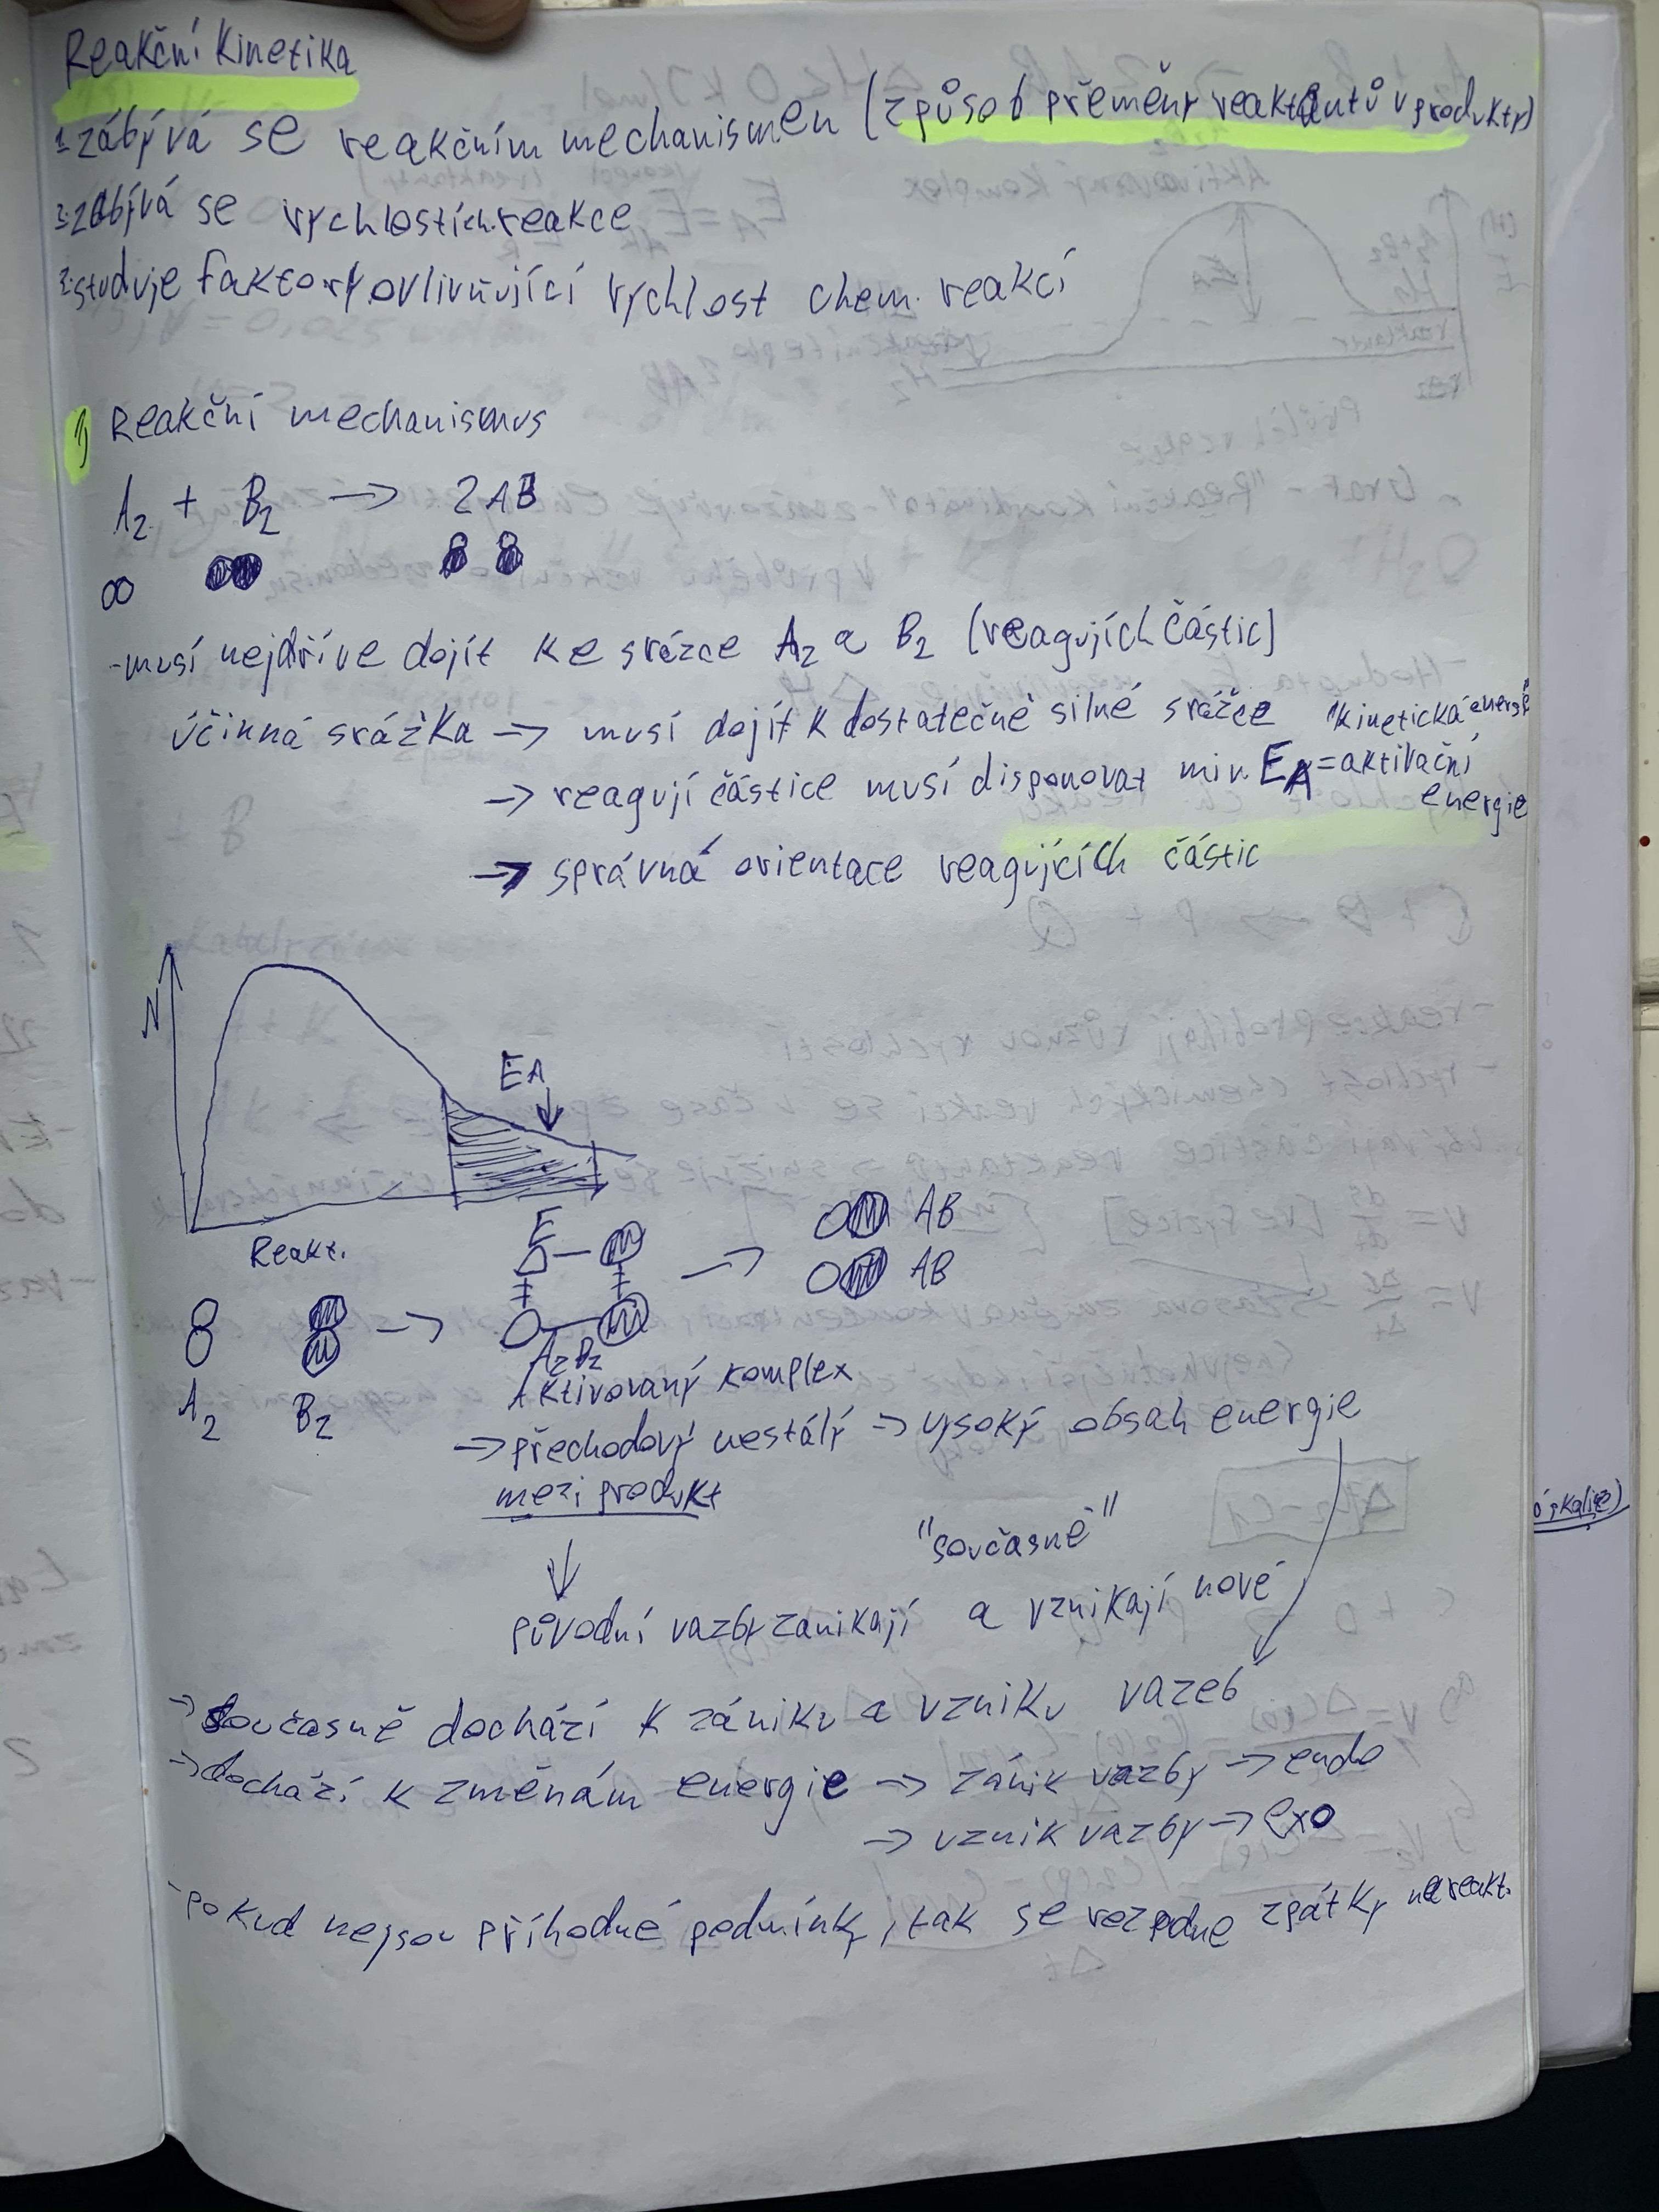 Reakční kinetika
1. zábývá se reakčním mechanismen (způsob přeměny reaktantů v produkty)
3. zabývá se rychlostích reakce
2. studuje faktory ovlivňující rychlost chem. reakcí
1) Reakční mechanismus
A2 + B2 → 2AB
-musí nejdříve dojít ke srázce A2 a B2 (reagujích částic)
účinná srážka → musí dojít k dostatečně silné srážce "kinetická energ"
→ reagují částice musí disponovat min. EA = aktivační
energie
→ správná orientace reagujících částic
N
EA
E
Reakt.
→ AB
AB
→
A2B2
A2 B2
Aktivovaný komplex
→ přechodový nestálý → vysoký obsah energie
meziprodukt
"současně"
původní vazby zanikají a vznikají nové
→ současně dochází k zániku a vzniku vazeb
→ dochází k změnám energie → zánik vazby → endo
→ vznik vazby → exo
- pokud nejsou příhodné podmínky, tak se rozpadne zpátky na reakt.